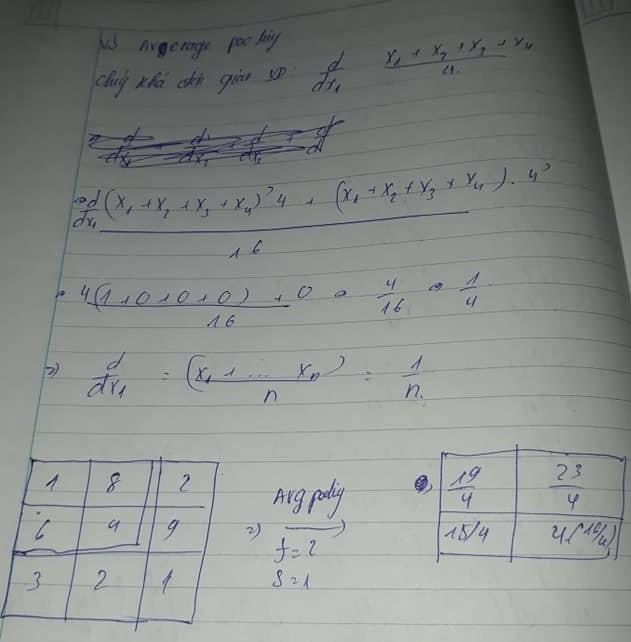 Với Average pooling
chúng khá đơn giản VD: d/dx₁ (x₁ + x₂ + x₃ + x₄)/4.
= d/dx₁ (x₁ + x₂ + x₃ + x₄)' 4 + (x₁ + x₂ + x₃ + x₄) . 4'
16
= 4(1+0+0+0) + 0 / 16 = 4/16 = 1/4.
=> d/dx₁ = (x₁ + ... xₙ)/n = 1/n.
1 8 2
6 4 9
3 2 1
Avg poolig
=>
f = 2
S = 1
19/4 23/4
15/4 4 (16/4)